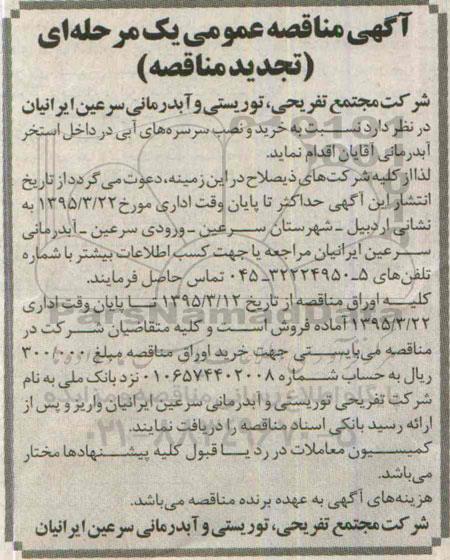 آگهی مناقصه عمومی یک مرحله‌ای
(تجدید مناقصه)
شرکت مجتمع تفریحی، توریستی و آبدرمانی سرعین ایرانیان
در نظر دارد نسبت به خرید و نصب سرسره‌های آبی در داخل استخر
آبدرمانی آقایان اقدام نماید.
لذا از کلیه شرکت‌های ذیصلاح در این زمینه، دعوت می‌گردد از تاریخ
انتشار این آگهی حداکثر تا پایان وقت اداری مورخ ۱۳۹۵/۳/۲۲ به
نشانی اردبیل ـ شهرستان سرعین ـ ورودی سرعین ـ آبدرمانی
سرعین ایرانیان مراجعه یا جهت کسب اطلاعات بیشتر با شماره
تلفن‌های ۵ـ۳۲۲۲۴۹۵۰ـ۰۴۵ تماس حاصل فرمایند.
کلیه اوراق مناقصه از تاریخ ۱۳۹۵/۳/۱۲ تا پایان وقت اداری
۱۳۹۵/۳/۲۲ آماده فروش است و کلیه متقاضیان شرکت در
مناقصه می‌بایستی جهت خرید اوراق مناقصه مبلغ ۳۰۰/۰۰۰
ریال به حساب شماره ۰۱۰۶۵۷۴۴۰۲۰۰۸ نزد بانک ملی به نام
شرکت تفریحی توریستی و آبدرمانی سرعین ایرانیان واریز و پس از
ارائه رسید بانکی اسناد مناقصه را دریافت نمایند.
کمیسیون معاملات در رد یا قبول کلیه پیشنهادها مختار
می‌باشد.
هزینه‌های آگهی به عهده برنده مناقصه می‌باشد.
شرکت مجتمع تفریحی، توریستی و آبدرمانی سرعین ایرانیان
ParsNamadData